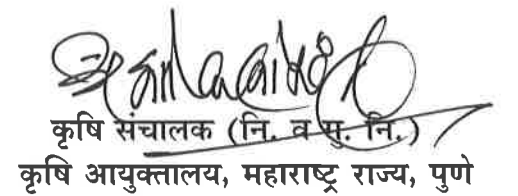 कृषि संचालक (नि. व गु. नि.)
कृषि आयुक्तालय, महाराष्ट्र राज्य, पुणे